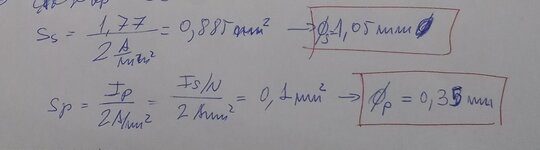 Ss = 1,77 / 2 A/mm² = 0,885 mm² → ϕs=1,05 mm
Sp = Ip / 2 A/mm² = Is/N / 2 A/mm² = 0,1 mm² → ϕp = 0,35 mm